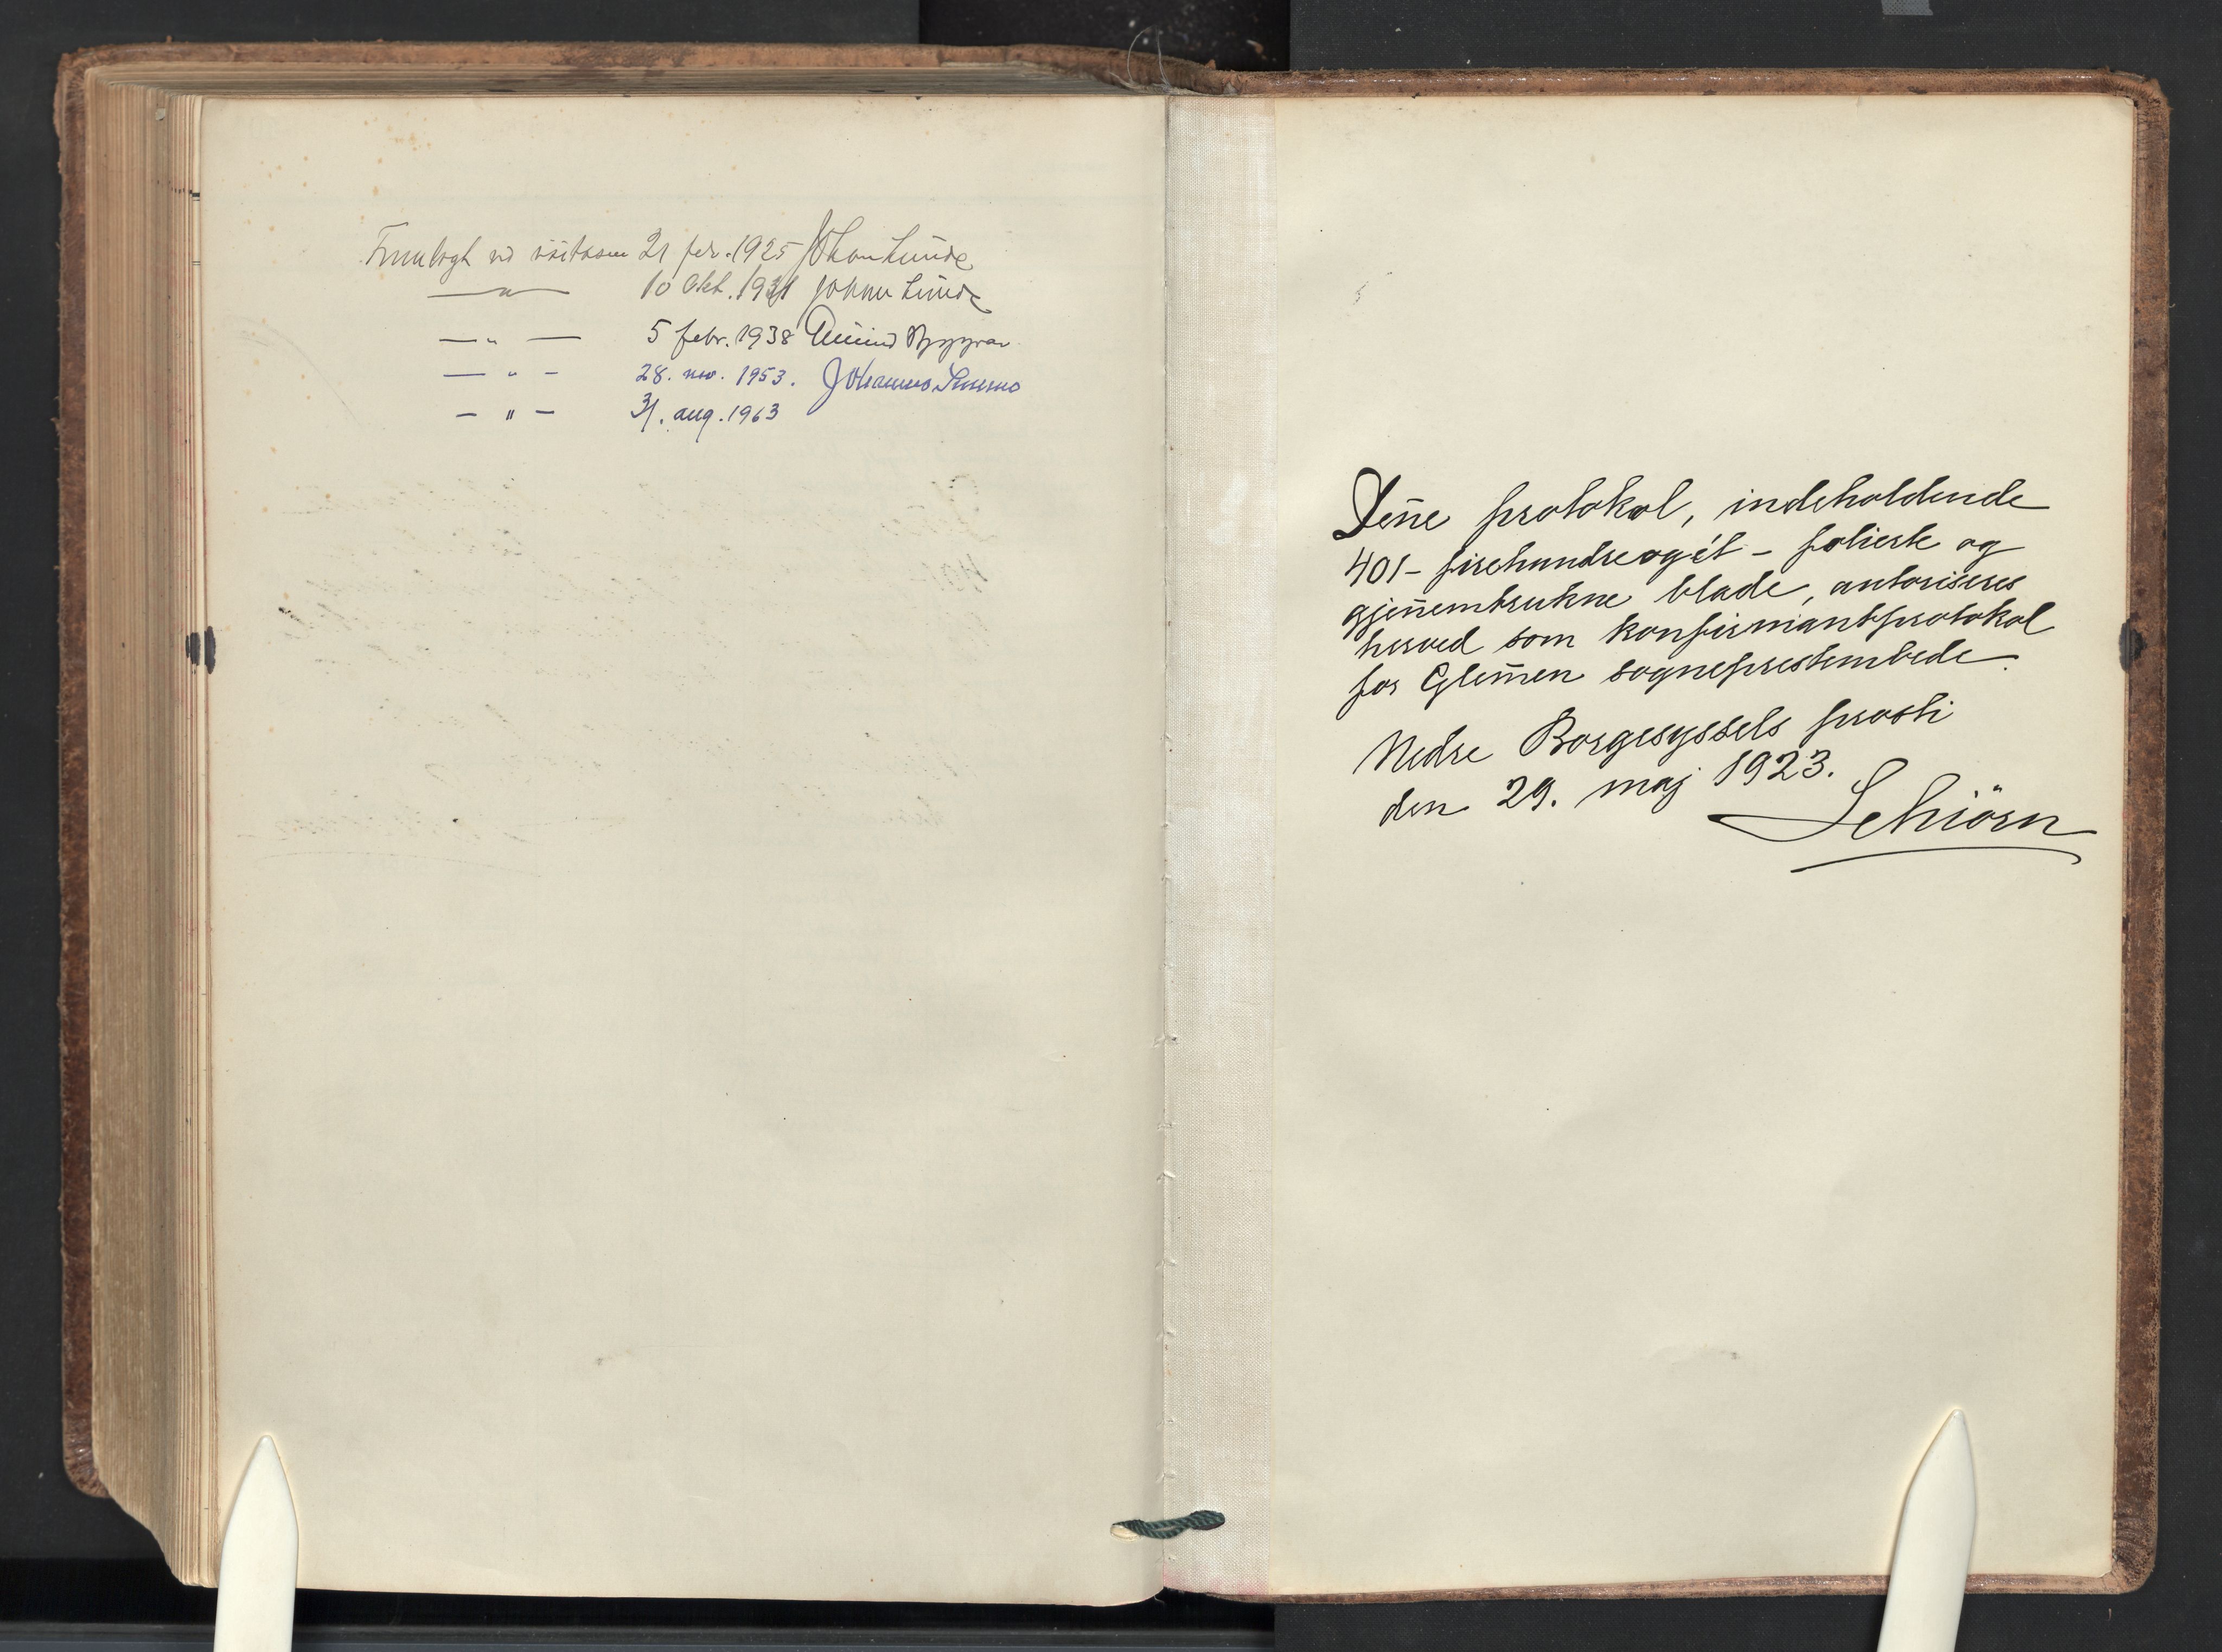 Fremlagt ved visitasen 21 febr. 1925 Johan Lunde
— " — 10 Okt. 1931 Johan Lunde
— " — 5 febr. 1938 Eivind Berggrav
— " — 28. nov. 1953. Johannes Smemo
— " — 31. aug. 1963
Deñe protokol, indeholdende
401 – firehundreogét – folierte og
gjeñemtrukne blade, autoriseres
herved som konfirmantprotokol
for Glem̃en sogneprestembede.
Nedre Borgesyssels prosti
den 29. maj 1923.
Schiörn